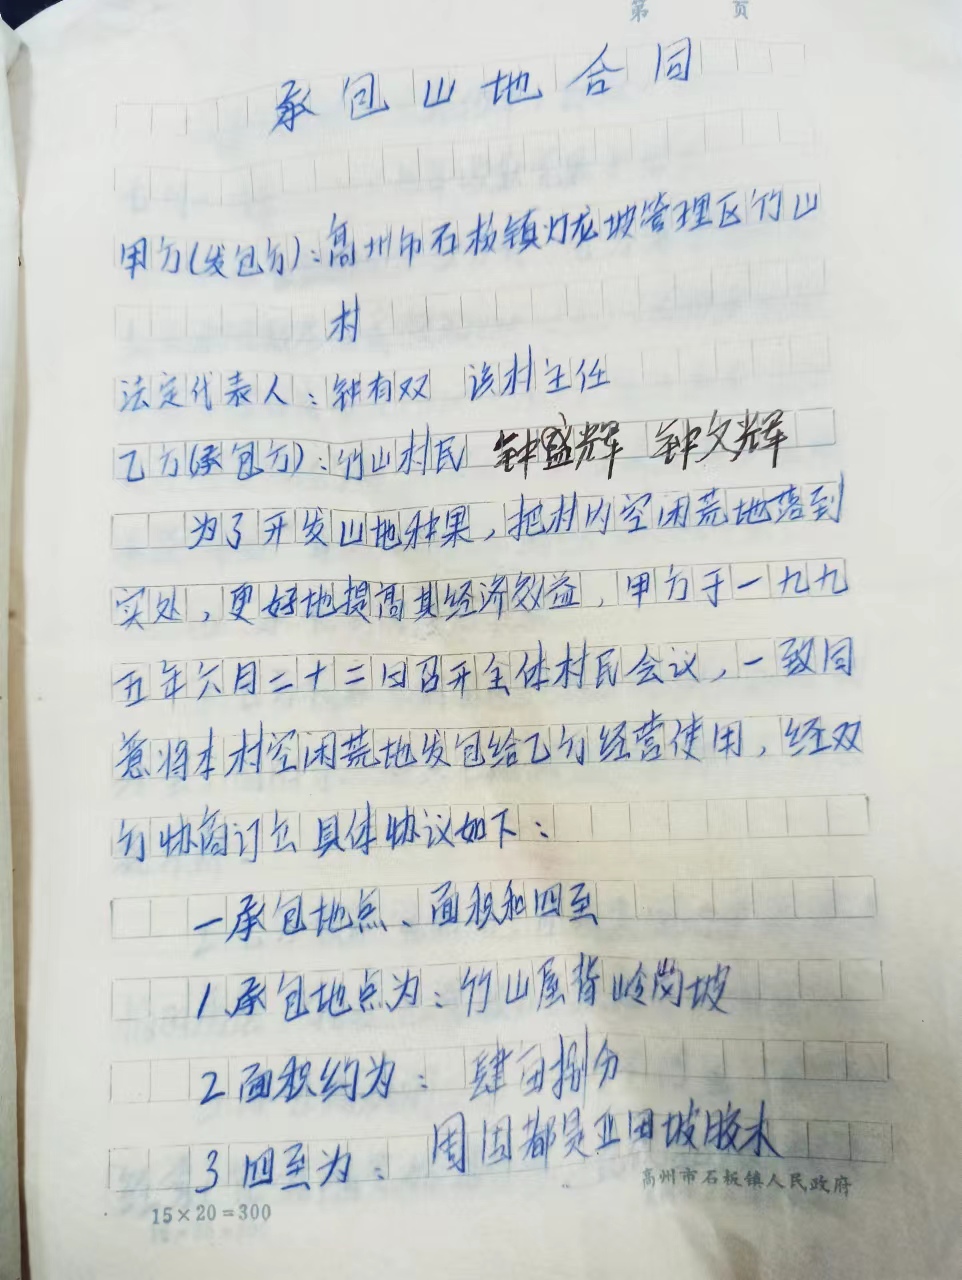 第 页
承包山地合同
甲方(发包方):高州市石板镇灯龙坡管理区竹山
村
法定代表人:钟有双 该村主任
乙方(承包方):竹山村民 钟盛辉 钟文辉
为了开发山地种果,把村内空闲荒地落到
实处,更好地提高其经济效益,甲方于一九九
五年六月二十二日召开全体村民会议,一致同
意将本村空闲荒地发包给乙方经营使用,经双
方协商订立具体协议如下:
一承包地点、面积和四至
1.承包地点为:竹山屋背岭岗坡
2面积约为:肆亩捌分
3四至为:周围都是亚田坡胶木
高州市石板镇人民政府
15×20=300